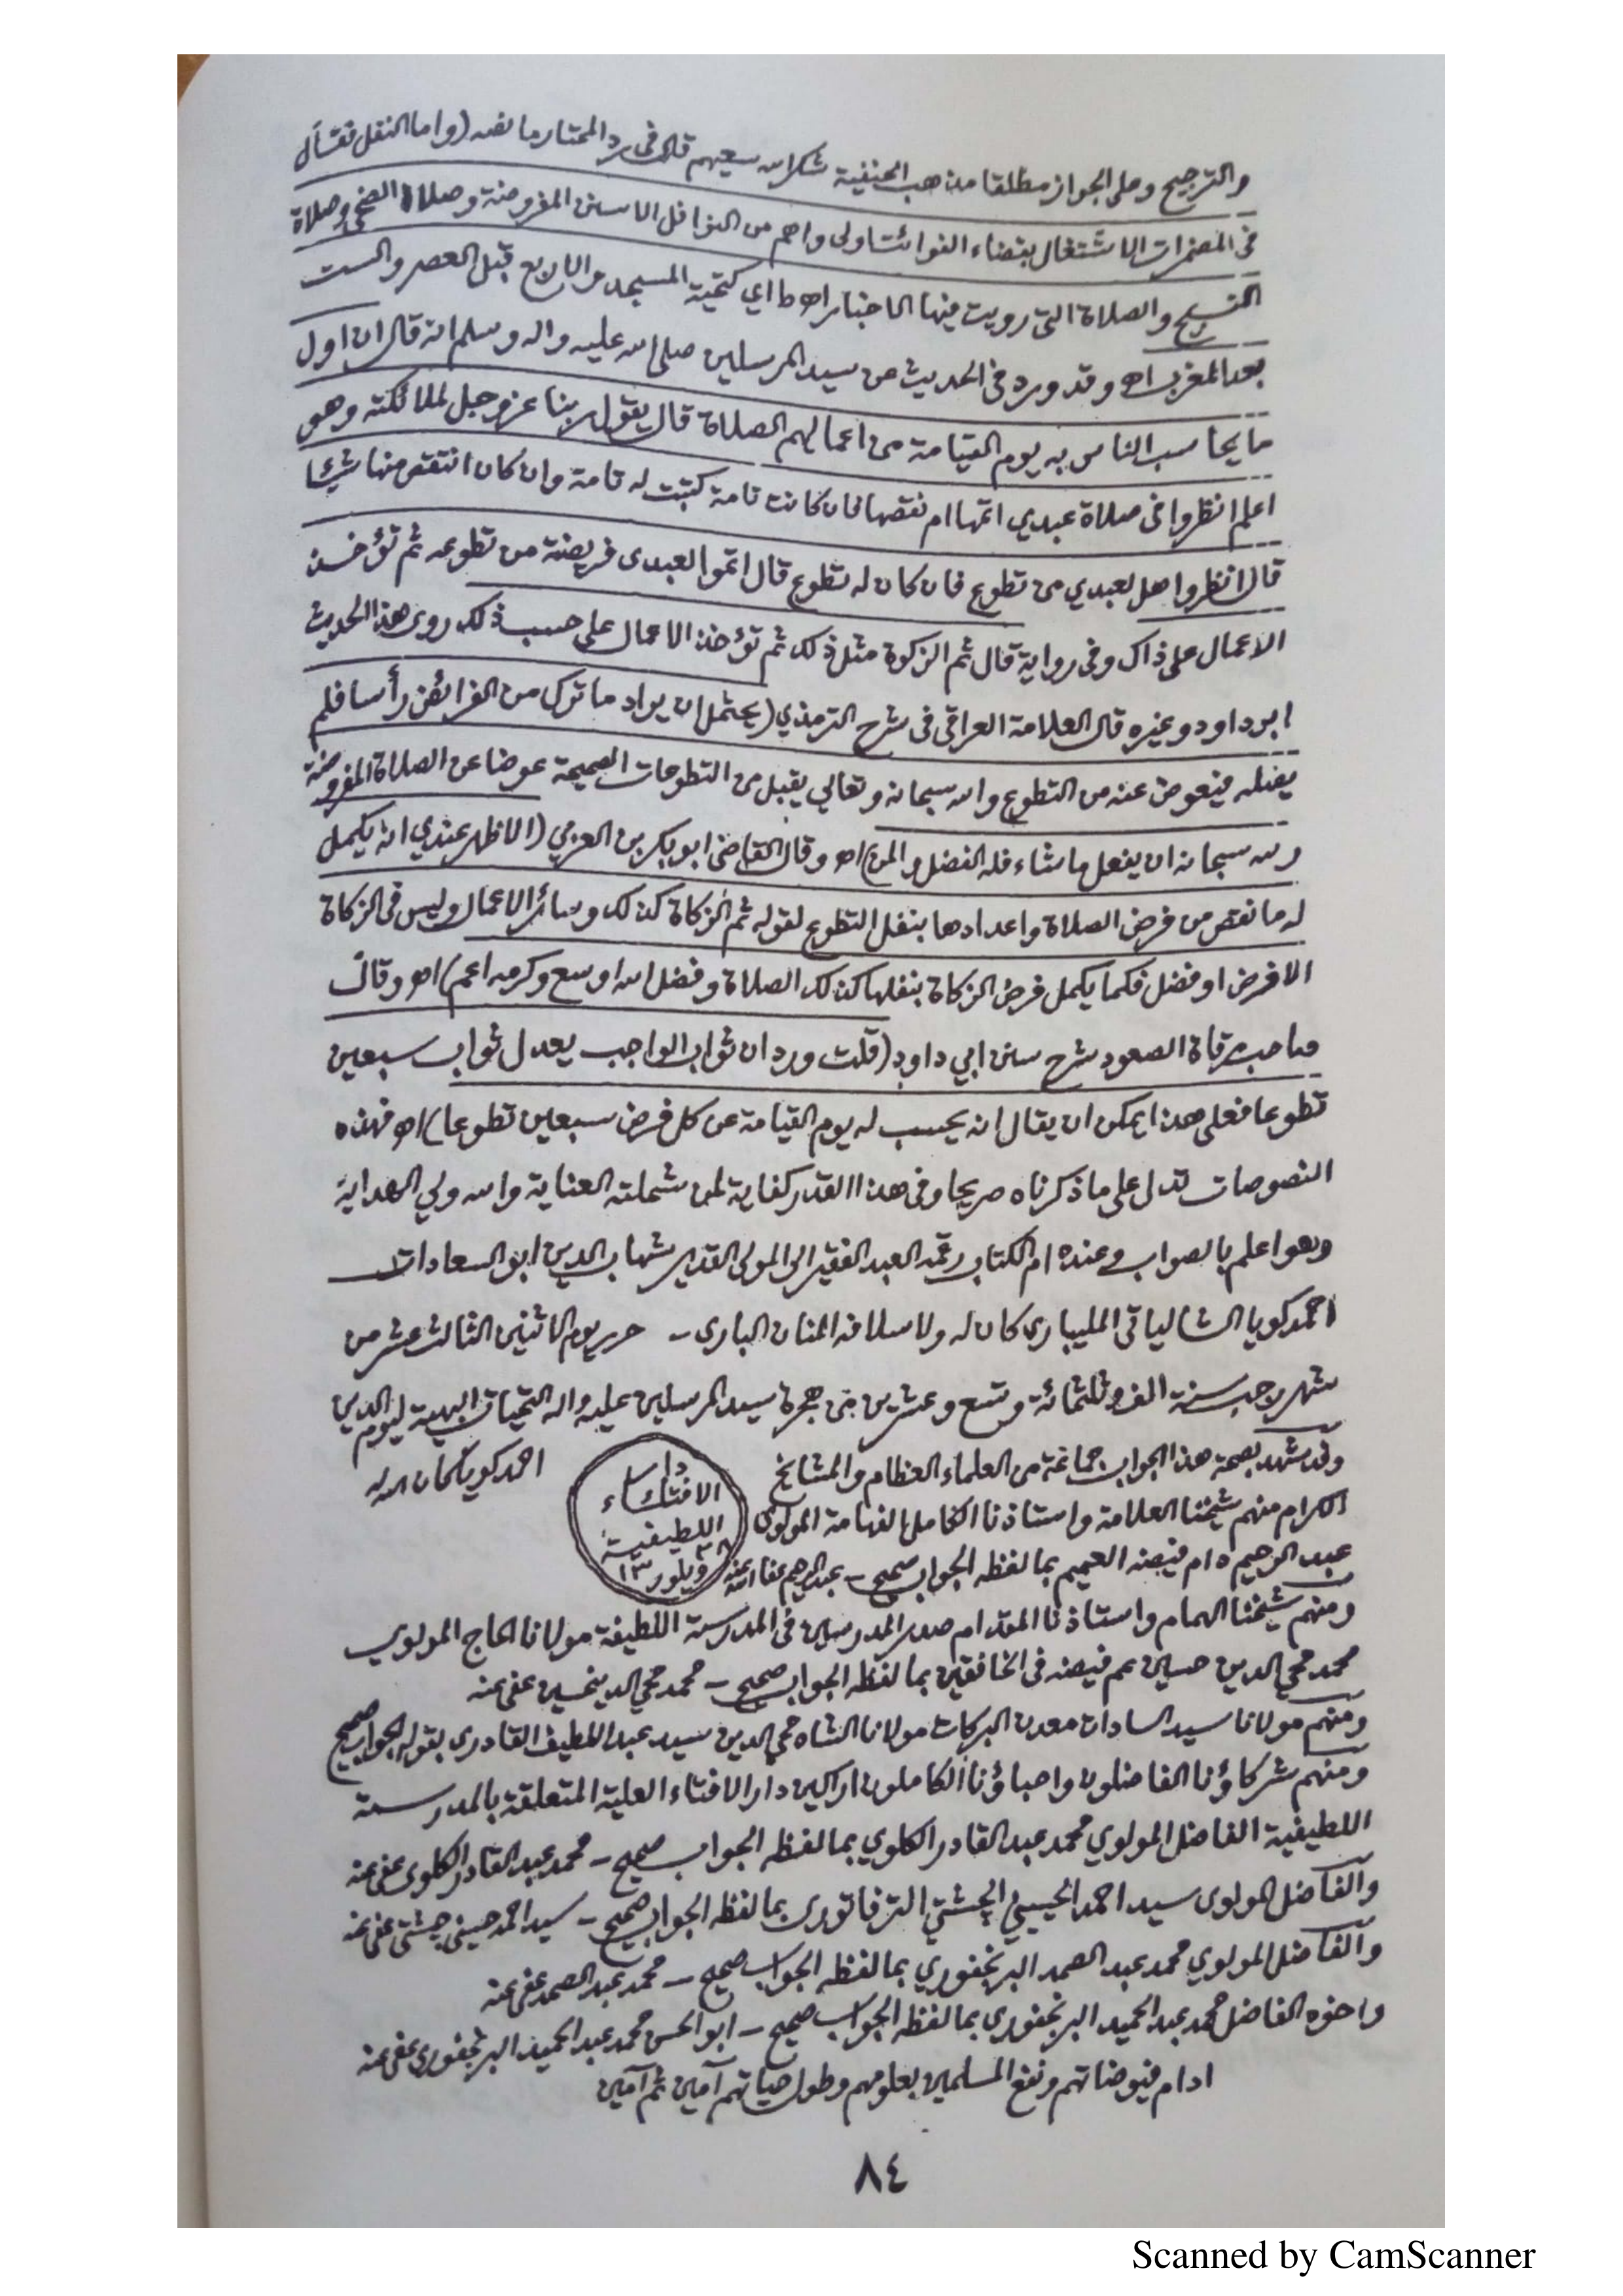 والترجيح وعلى الجواز مطلقا مذهب الحنفية شكر الله سعيهم قال فى رد المحتار ما نصه (واما النفل فقال
فى المضمرات الاشتغال بقضاء الفوائت اولى واهم من النوافل الا سنن المفروضة وصلاة الضحى وصلاة
التسبيح والصلاة التى رويت فيها الاخبار اه ط اي كتحية المسجد والاربع قبل العصر والست
بعد المغرب اه وقد ورد فى الحديث عن سيد المرسلين صلى الله عليه واله وسلم انه قال ان اول
ما يحاسب الناس به يوم القيامة من اعمالهم الصلاة قال يقول ربنا عز وجل لملائكته وهو
اعلم انظروا فى صلاة عبدي اتمها ام نقصها فان كانت تامة كتبت له تامة وان كان انتقص منها شيئا
قال انظروا هل لعبدي من تطوع فان كان له تطوع قال اتموا لعبدى فريضته من تطوعه ثم تؤخذ
الاعمال على ذاك وفى رواية قال ثم الزكوة مثل ذلك ثم تؤخذ الاعمال على حسب ذلك روى هذا الحديث
ابو داود وغيره قال العلامة العراقي فى شرح الترمذي (يحتمل ان يراد ما ترك من الفرائض رأسا فلم
يفعله فيعوض عنه من التطوع والله سبحانه وتعالي يقبل من التطوعات الصحيحة عوضا عن الصلاة المفروضة
ولله سبحانه ان يفعل ما شاء فله الفضل والمن) اه وقال القاضى ابو بكر بن العربي (الاظهر عندي انه يكمل
له ما نقص من فرض الصلاة واعدادها بنفل التطوع لقوله ثم الزكاة كذلك وسائر الاعمال وليس فى الزكاة
الا فرض او فضل فكما يكمل فرض الزكاة بنفلها كذلك الصلاة وفضل الله اوسع وكرمه اعم) اه وقال
صاحب مرقاة الصعود شرح سنن ابي داود (قلت ورد ان ثواب الواجب يعدل ثواب سبعين
تطوعا فعلى هذا يمكن ان يقال انه يحسب له يوم القيامة عن كل فرض سبعين تطوعا) اه فهذه
النصوصات تدل على ما ذكرناه صريحا وفى هذا القدر كفاية لمن شملته العناية والله ولي الهداية
وهو اعلم بالصواب وعنده ام الكتاب رقمه العبد الفقير الى المولى القدير شهاب الدين ابو السعادات
احمد كويا الشالياتى المليبارى كان له ولاسلافه المنان البارى - حرر يوم الاثنين الثالث عشر من
شهر رجب سنة الف وثلثمائة وتسع وعشرين من هجرة سيد المرسلين عليه واله التحيات البهية ليوم الدين
وقد شهد بصحة هذا الجواب جماعة من العلماء العظام والمشائخ
احمد كويا كان الله له
دار
الافتاء
اللطيفية
ويلور ١٣
الكرام منهم شيخنا العلامة واستاذنا الكامل الفهامة المولوى
عبد الرحيم دام فيضه العميم بما لفظه الجواب صحيح - عبد الرحيم عفا الله عنه
ومنهم شيخنا الهمام واستاذنا المقدام صدر المدرسين فى المدرسة اللطيفة مولانا الحاج المولوي
محمد محي الدين حسين عم فيضه فى الخافقين بما لفظه الجواب صحيح - محمد محي الدين حسين عفى عنه
ومنهم مولانا سيد السادات معدن البركات مولانا الشاه محي الدين سيد عبد اللطيف القادرى بقوله الجواب صحيح
ومنهم شركاؤنا الفاضلون واحباؤنا الكاملون اراكين دار الافتاء العلية المتعلقة بالمدرسة
اللطيفية الفاضل المولوي محمد عبد القادر الكلوي بما لفظه الجواب صحيح - محمد عبد القادر الكلوى عفى عنه
والفاضل المولوى سيد احمد الحسيني الچشتي الترفاتورى بما لفظه الجواب صحيح - سيد احمد حسيني چشتى عفى عنه
والفاضل المولوي محمد عبد الصمد البرنجفوري بما لفظه الجواب صحيح - محمد عبد الصمد عفى عنه
واخوه الفاضل محمد عبد الحميد البرنجفوري بما لفظه الجواب صحيح - ابو الحسن محمد عبد الحميد البرنجفوري عفى عنه
ادام فيوضاتهم ونفع المسلمين بعلومهم وطول حياتهم آمين ثم آمين
٨٤
Scanned by CamScanner